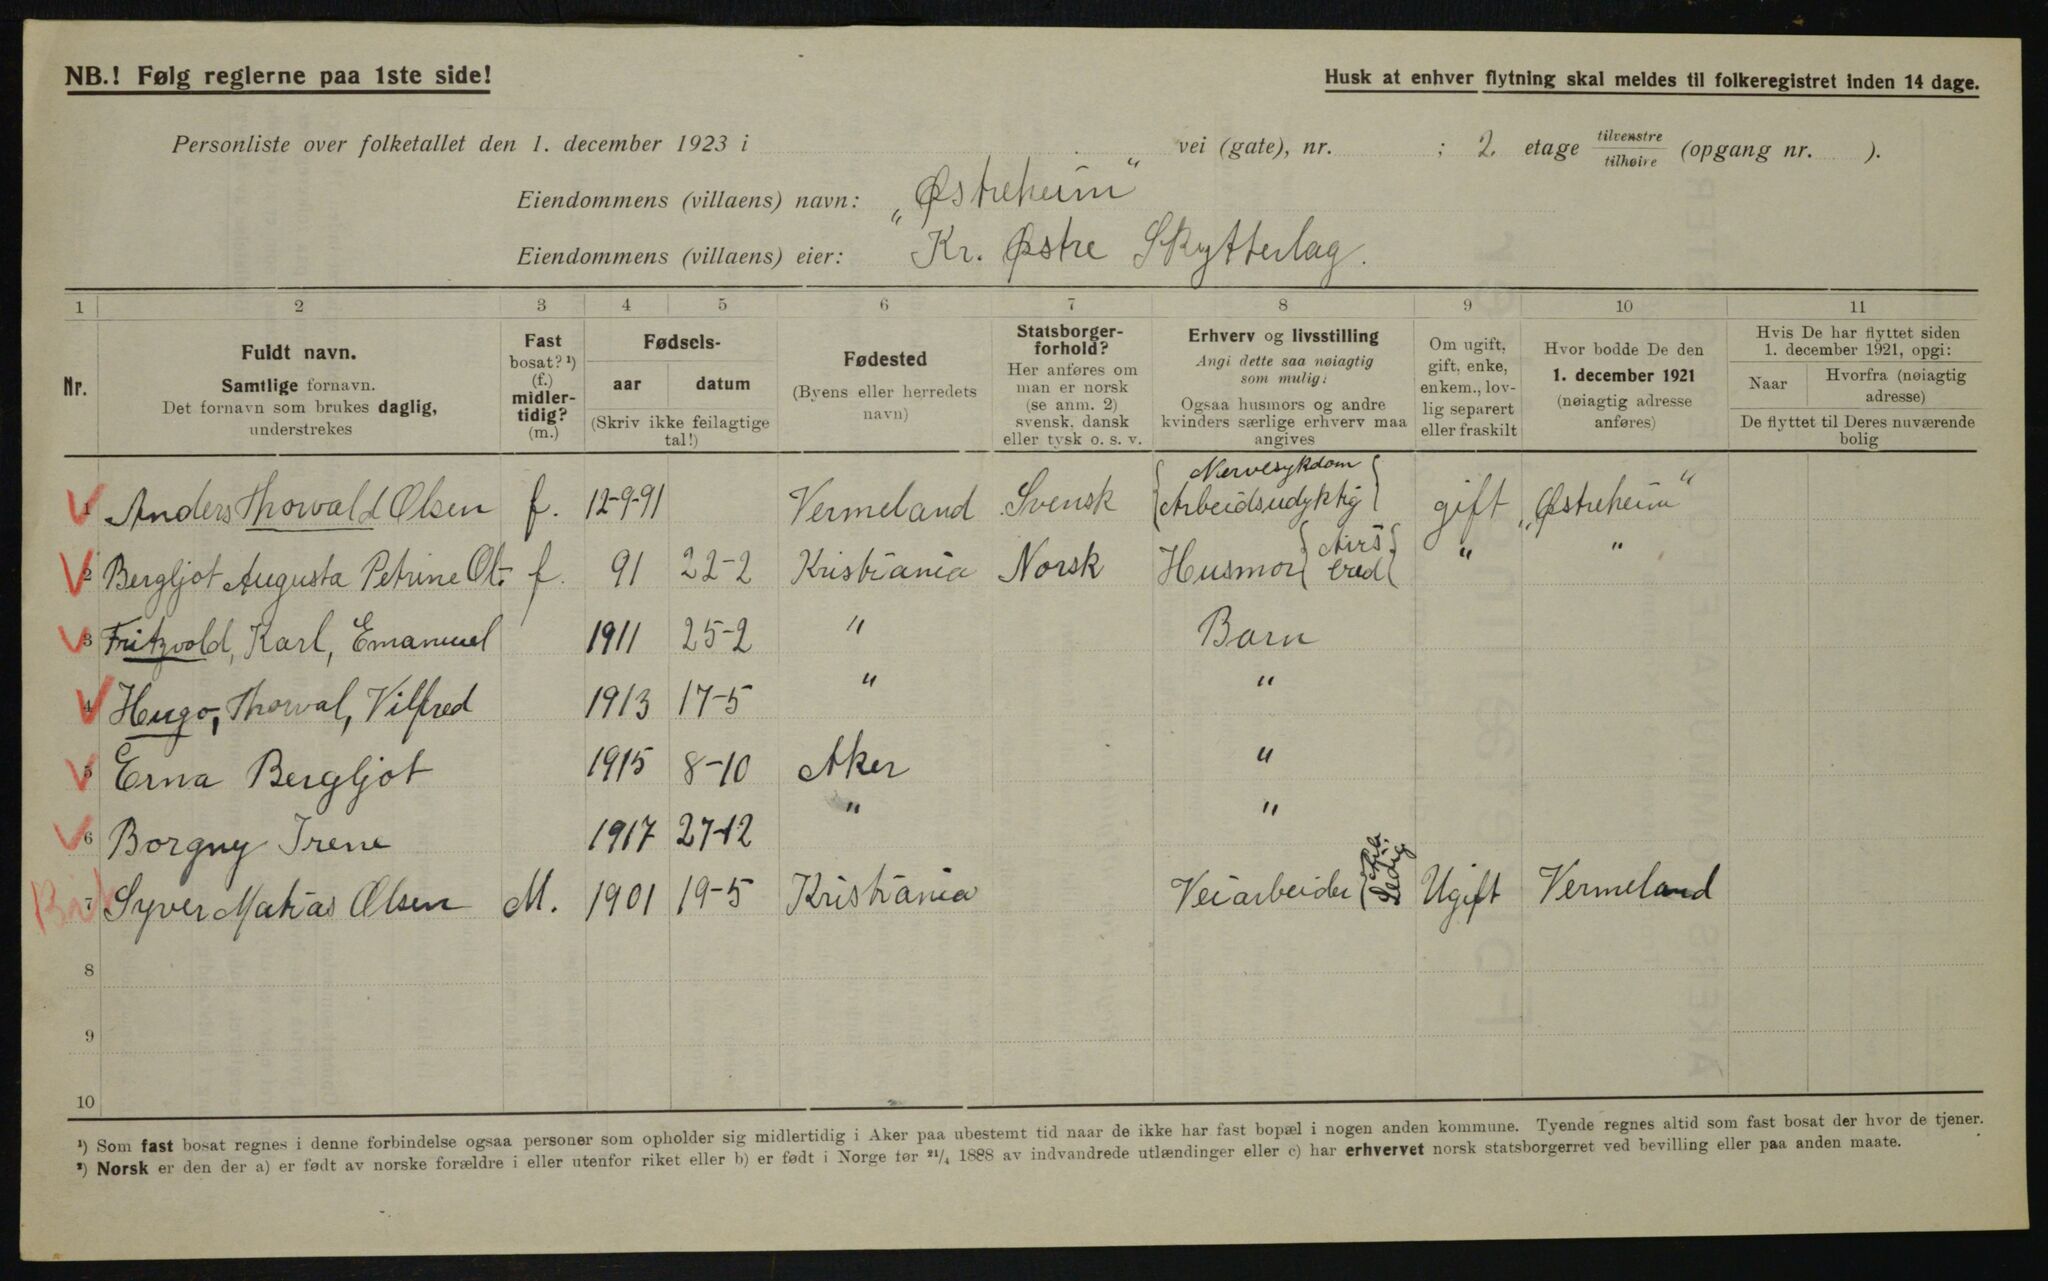 NB.! Følg reglerne paa 1ste side!
Husk at enhver flytning skal meldes til folkeregistret inden 14 dage.
Personliste over folketallet den 1. december 1923 i vei (gate), nr. ; 2. etage tilvenstre tilhøire (opgang nr. ).
Eiendommens (villaens) navn: „Østreheim"
Eiendommens (villaens) eier: Kr. Østre Skytterlag.
1 2 3 4 5 6 7 8 9 10 11
Nr.
Fuldt navn.
Samtlige fornavn.
Det fornavn som brukes daglig,
understrekes
Fast
bosat? ¹)
(f.)
midler-
tidig?
(m.)
Fødsels-
aar datum
(Skriv ikke feilagtige
tal!)
Fødested
(Byens eller herredets
navn)
Statsborger-
forhold?
Her anføres om
man er norsk
(se anm. 2)
svensk, dansk
eller tysk o. s. v.
Erhverv og livsstilling
Angi dette saa nøiagtig
som mulig:
Ogsaa husmors og andre
kvinders særlige erhverv maa
angives
Om ugift,
gift, enke,
enkem., lov-
lig separert
eller fraskilt
Hvor bodde De den
1. december 1921
(nøiagtig adresse
anføres)
Hvis De har flyttet siden
1. december 1921, opgi:
Naar Hvorfra (nøiagtig
adresse)
De flyttet til Deres nuværende
bolig
Nervesykdom
1 Anders Thorvald Olsen f. 12-9-91 Vermeland Svensk Arbeidsudyktig gift „Østreheim"
2 Bergljot Augusta Petrine Ol- f. 91 22-2 Kristiania Norsk Husmor " "
3 Fritzvold, Karl, Emanuel 1911 25-2 " Barn
4 Hugo, Thorval, Vilfred 1913 17-5 " "
5 Erna Bergljot 1915 8-10 Aker "
6 Borgny Irene 1917 27-12 " "
7 Syver Matias Olsen M. 1901 19-5 Kristiania Veiarbeider ledig Ugift Vermeland
8
9
10
¹) Som fast bosat regnes i denne forbindelse ogsaa personer som opholder sig midlertidig i Aker paa ubestemt tid naar de ikke har fast bopæl i nogen anden kommune. Tyende regnes altid som fast bosat der hvor de tjener.
²) Norsk er den der a) er født av norske forældre i eller utenfor riket eller b) er født i Norge før ²¹/₄ 1888 av indvandrede utlændinger eller c) har erhvervet norsk statsborgerret ved bevilling eller paa anden maate.